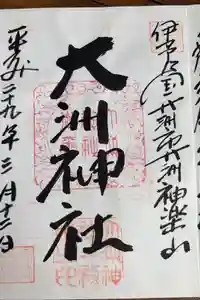 伊予国大洲市大洲神楽山
大洲神社
平成二十九年三月十二日